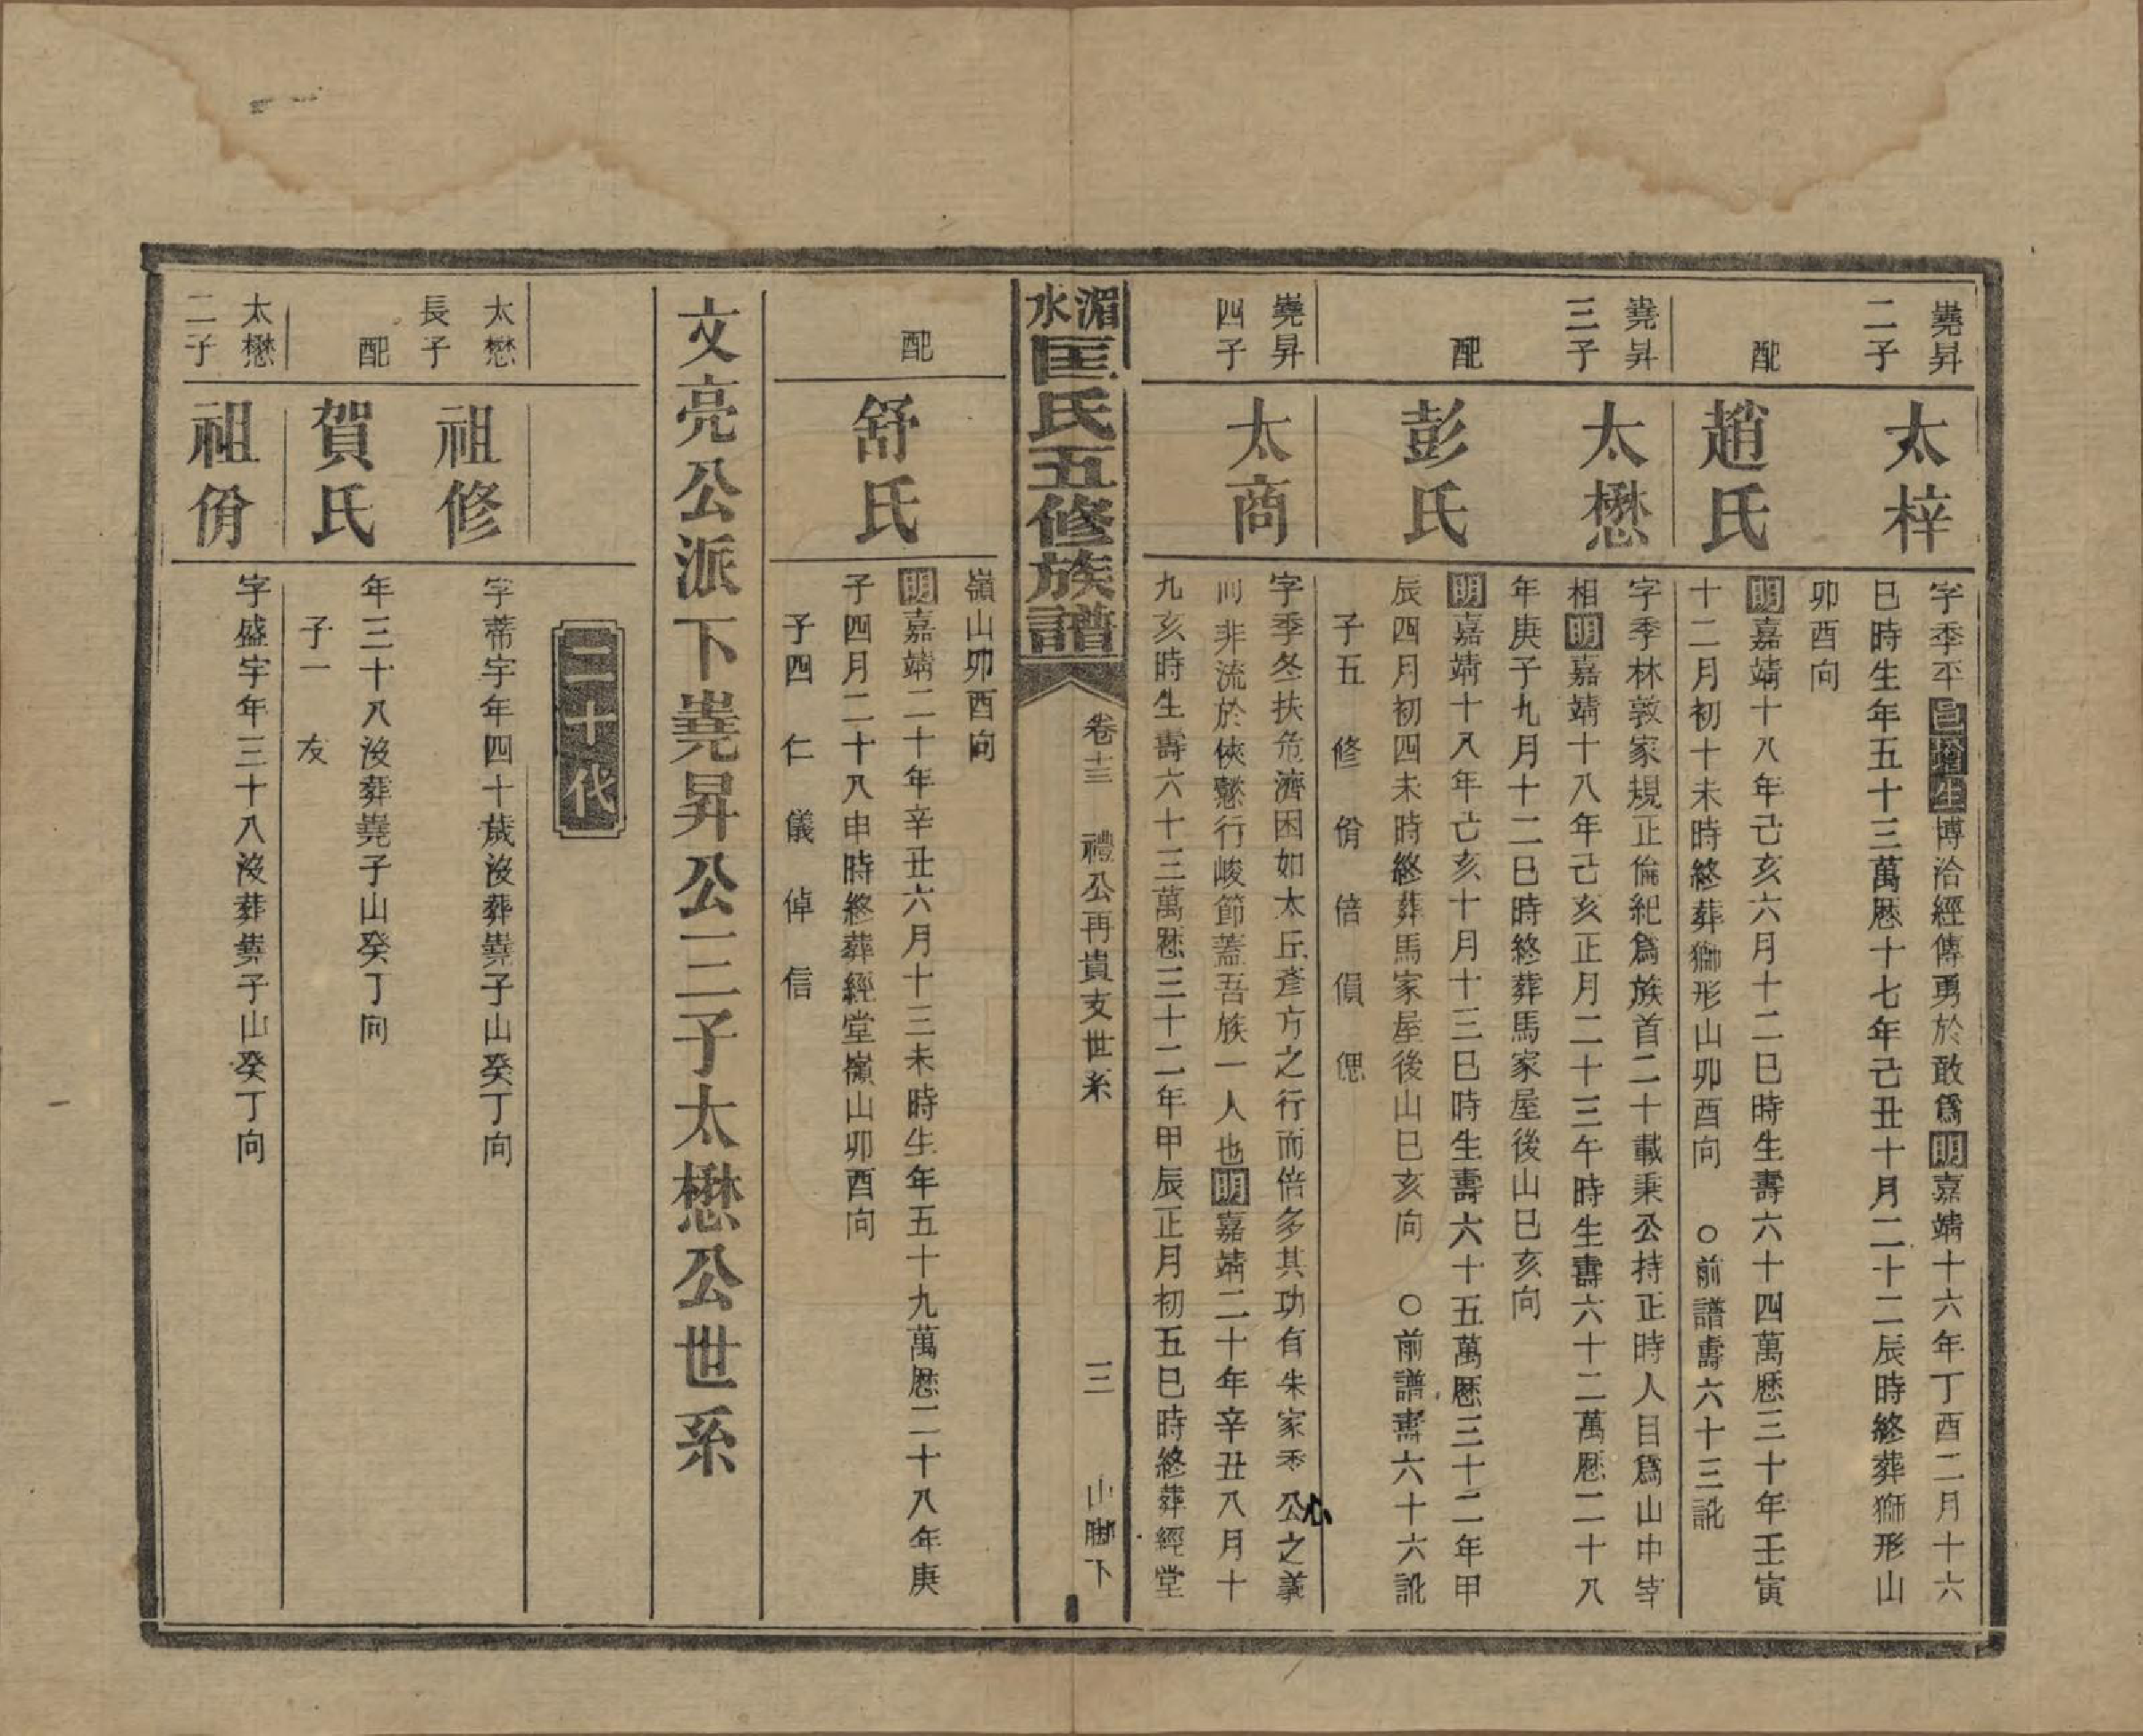 嶤昇
二子
太梓
字季平邑增生博洽經傳勇於敢爲明嘉靖十六年丁酉二月十六
巳時生年五十三萬厯十七年己丑十月二十二辰時終葬獅形山
卯酉向
配
趙氏
明嘉靖十八年己亥六月十二巳時生壽六十四萬厯三十年壬寅
十二月初十未時終葬獅形山卯酉向 ○前譜壽六十三訛
嶤昇
三子
太懋
字季林敦家規正倫紀爲族首二十載秉公持正時人目爲山中宰
相明嘉靖十八年己亥正月二十三午時生壽六十二萬厯二十八
年庚子九月十二巳時終葬馬家屋後山巳亥向
配
彭氏
明嘉靖十八年亡亥十月十三巳時生壽六十五萬厯三十二年甲
辰四月初四未時終葬馬家屋後山巳亥向 ○前譜壽六十六訛
子五 修 佾 倍 傊 偲
嶤昇
四子
太商
字季冬扶危濟困如太丘彥方之行而倍多其功有朱家季公心之義
而非流於俠懸行峻節蓋吾族一人也明嘉靖二十年辛丑八月十
九亥時生壽六十三萬厯三十二年甲辰正月初五巳時終葬經堂
湄水匡氏五修族譜
卷十三 禮公再貴支世系
三 山腳下
嶺山卯酉向
配
舒氏
明嘉靖二十年辛丑六月十三未時生年五十九萬厯二十八年庚
子四月二十八申時終葬經堂嶺山卯酉向
子四 仁 儀 倬 信
文亮公派下嶤昇公三子太懋公世系
二十代
太懋
長子
祖修
字蒂宇年四十歲沒葬嶤子山癸丁向
配
賀氏
年三十八沒葬嶤子山癸丁向
子一 友
太懋
二子
祖佾
字盛宇年三十八沒葬嶤子山癸丁向